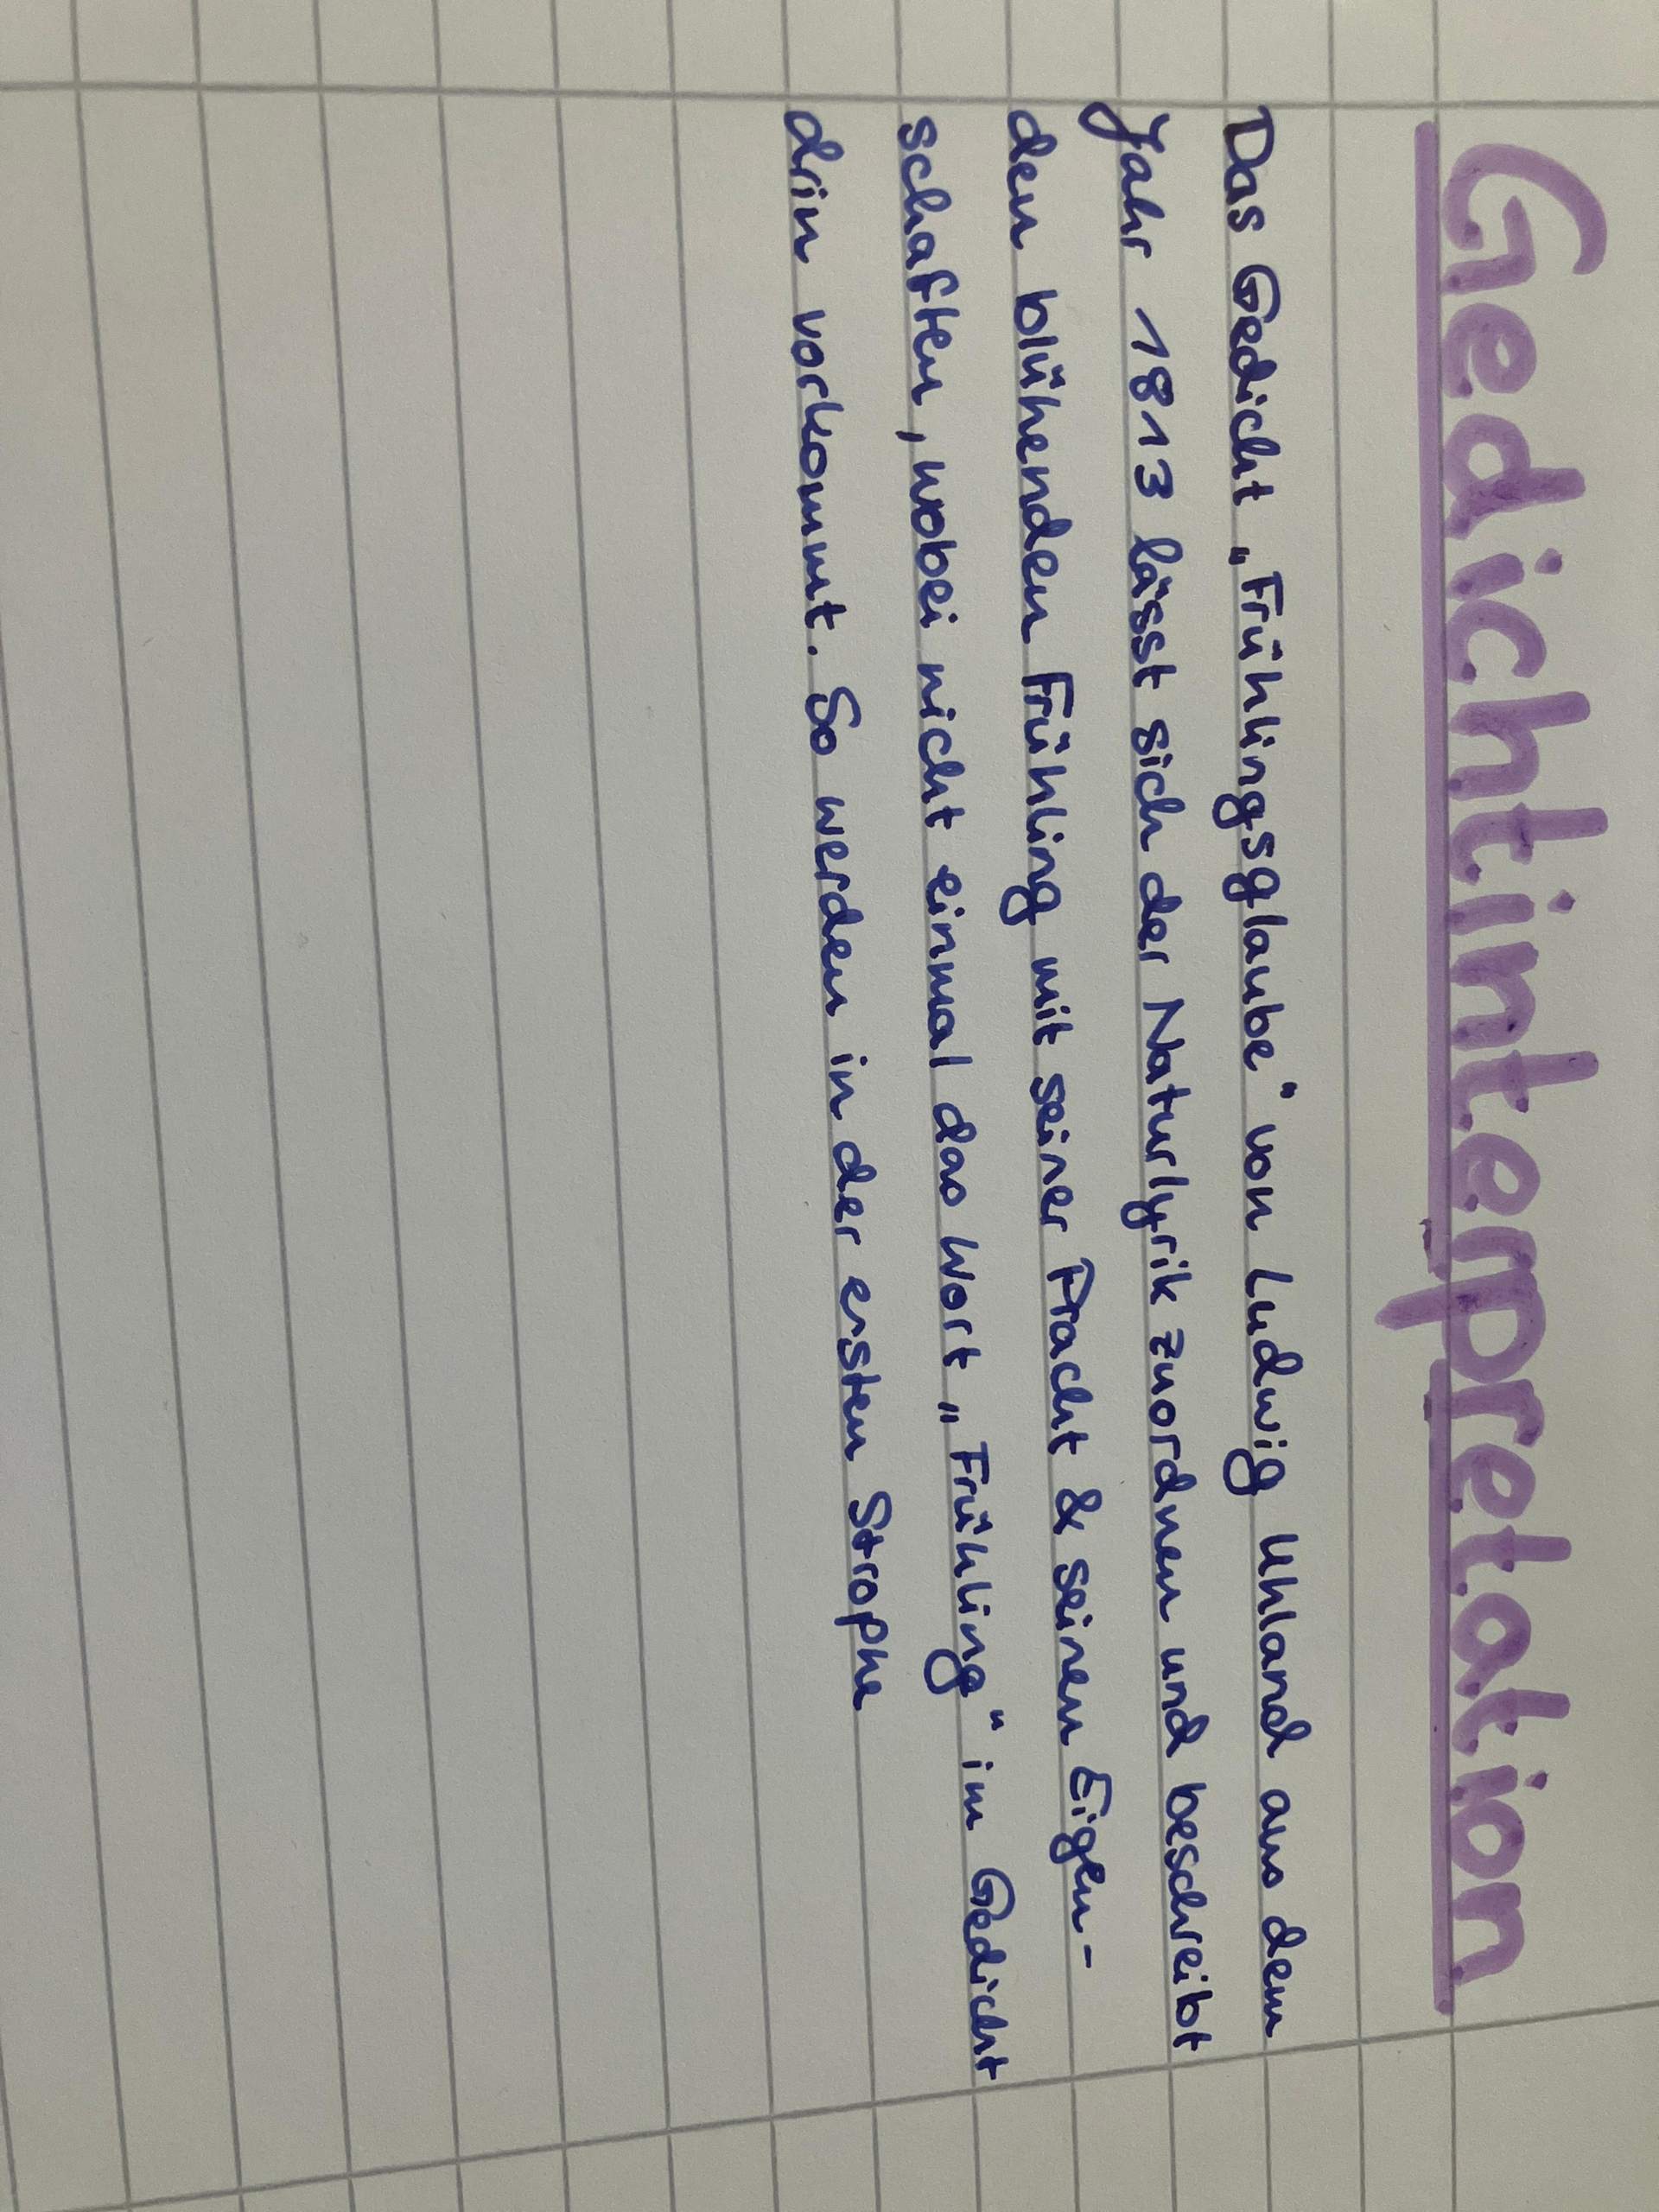 Gedichtinterpretation
Das Gedicht „Frühlingsglaube“ von Ludwig Uhland aus dem
Jahr 1813 lässt sich der Naturlyrik zuordnen und beschreibt
den blühenden Frühling mit seiner Pracht & seinen Eigen-
schaften, wobei nicht einmal das Wort „Frühling“ im Gedicht
drin vorkommt. So werden in der ersten Strophe